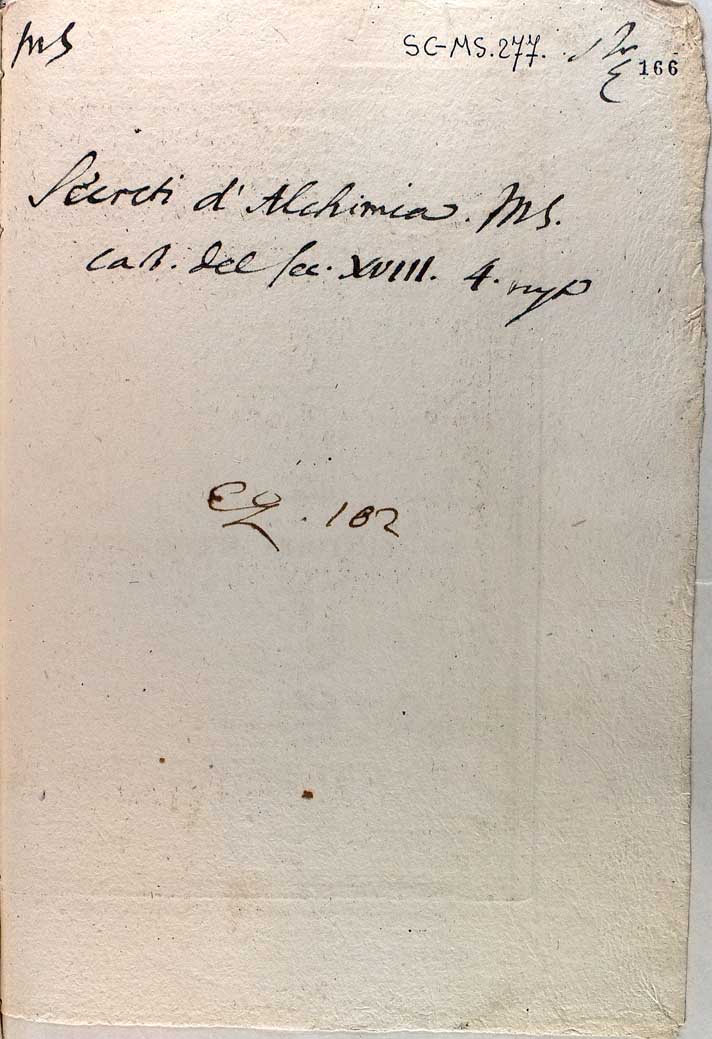 MS SC-MS.277. 166
Secreti d' Alchimia. MS.
cart. del sec. XVIII. 4.
cq. 182